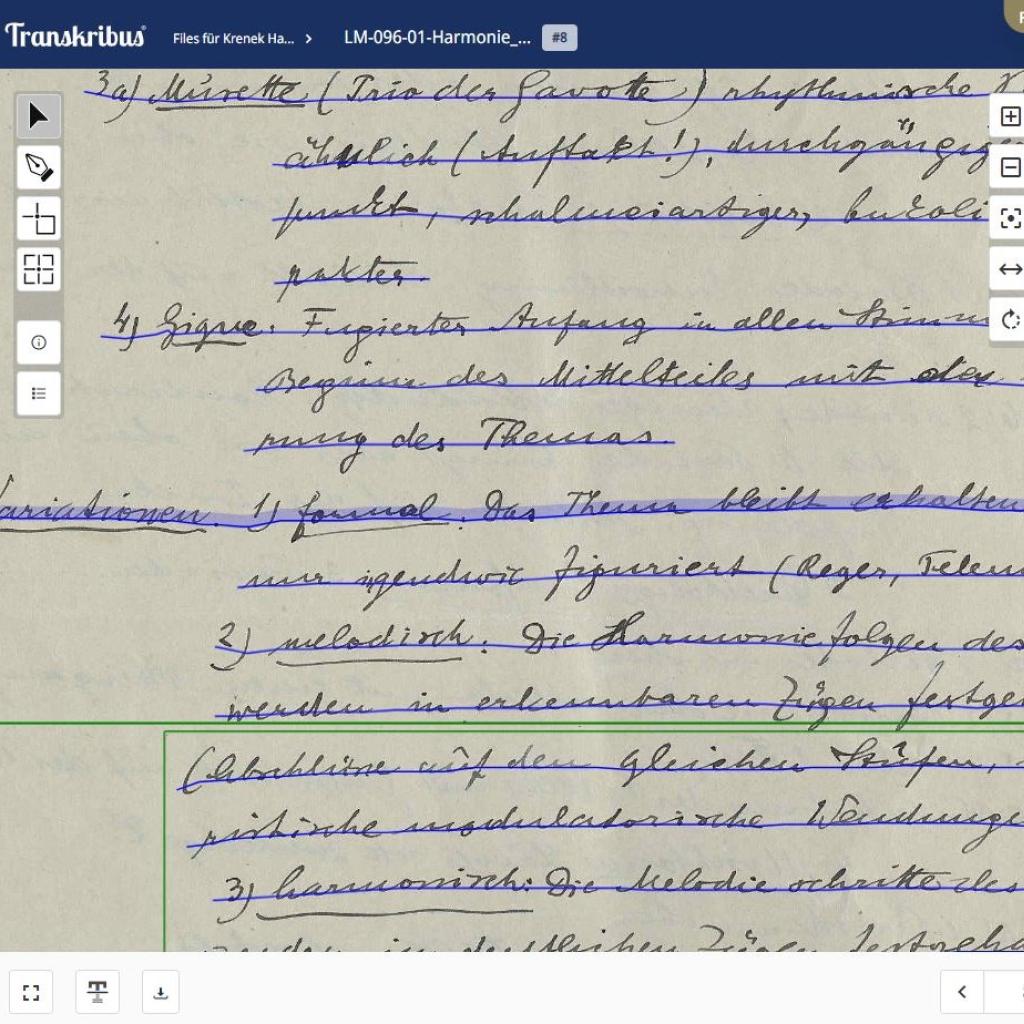 Transkribus
Files für Krenek Ha... > LM-096-01-Harmonie_... #8
3a) Müsette (Trio der Gavotte) rhythmische
ähnlich (Auftakt!), durchgängig
punkt, schalmeiartiger, bukoli
rakter.
4) Gigue. Fugierter Anfang in allen Stimm
Beginn des Mittelteiles mit der
rung des Themas.
Variationen. 1) formal. Das Thema bleibt erhalten
nur irgendwie figuriert (Reger, Telem
2) melodisch. Die Harmoniefolgen des
werden in erkennbaren Zügen festge
(Abschlüsse auf den gleichen Stufen,
ristische modulatorische Wendunge
3) harmonisch: Die Melodieschritte des
werden in deutlichen Zügen festgeha